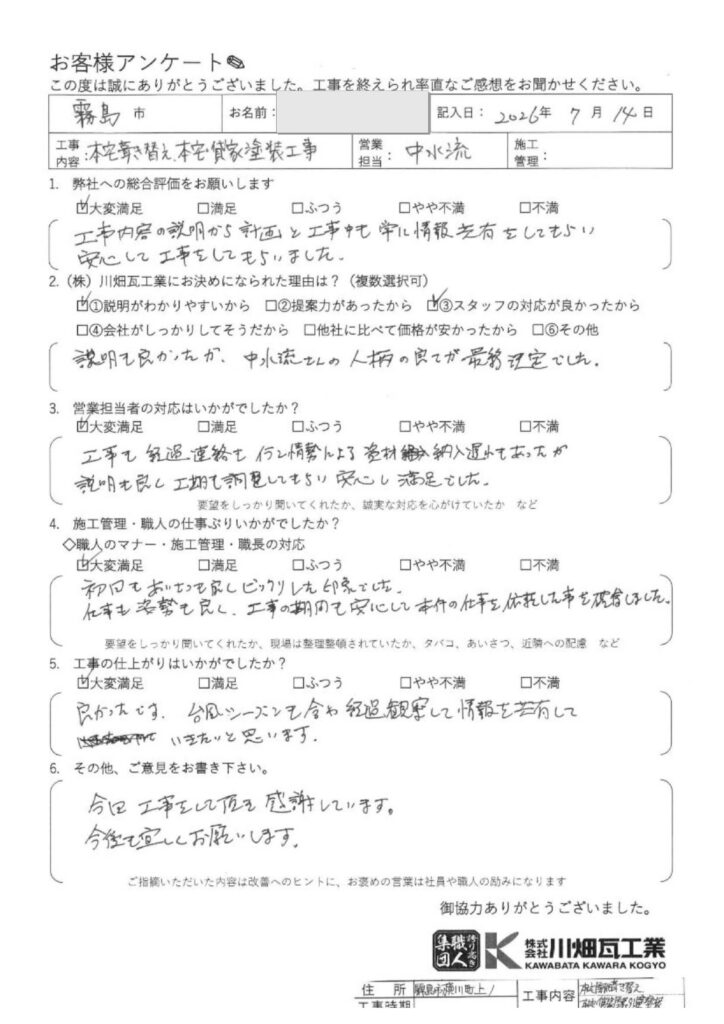 お客様アンケート
この度は誠にありがとうございました。工事を終えられ率直なご感想をお聞かせください。
霧島 市 お名前: 記入日: 2026年 7月 14日
工事内容: 本宅葺き替え、本宅・貸家塗装工事 営業担当: 中水流 施工管理:
1. 弊社への総合評価をお願いします
☑大変満足 □満足 □ふつう □やや不満 □不満
工事内容の説明から計画と工事中も常に情報共有をしてもらい
安心して工事をしてもらいました。
2.(株)川畑瓦工業にお決めになられた理由は?(複数選択可)
☑①説明がわかりやすいから □②提案力があったから ☑③スタッフの対応が良かったから
□④会社がしっかりしてそうだから □他社に比べて価格が安かったから □⑥その他
説明も良かったが、中水流さんの人柄の良さが最終決定でした。
3. 営業担当者の対応はいかがでしたか?
☑大変満足 □満足 □ふつう □やや不満 □不満
工事も経過連絡も行い情勢による資材 納入遅れもあったが
説明も良く工期も調整してもらい安心し満足でした。
要望をしっかり聞いてくれたか、誠実な対応を心がけていたか など
4. 施工管理・職人の仕事ぶりいかがでしたか?
◇職人のマナー・施工管理・職長の対応
☑大変満足 □満足 □ふつう □やや不満 □不満
初回もあいさつも良くビックリした印象でした。
仕事も姿勢も良く、工事の期間も安心して本件の仕事を依頼した事を しました。
要望をしっかり聞いてくれたか、現場は整理整頓されていたか、タバコ、あいさつ、近隣への配慮 など
5. 工事の仕上がりはいかがでしたか?
☑大変満足 □満足 □ふつう □やや不満 □不満
良かったです。台風シーズンも今や経過観察して情報を共有して
いきたいと思います。
6. その他、ご意見をお書き下さい。
今回工事をして頂き感謝しています。
今後も宜しくお願いします。
ご指摘いただいた内容は改善へのヒントに、お褒めの言葉は社員や職人の励みになります
御協力ありがとうございました。
誇り高き職人集団 株式会社川畑瓦工業
KAWABATA KAWARA KOGYO
住 所 霧島市 川町上ノ 工事内容
工事時期